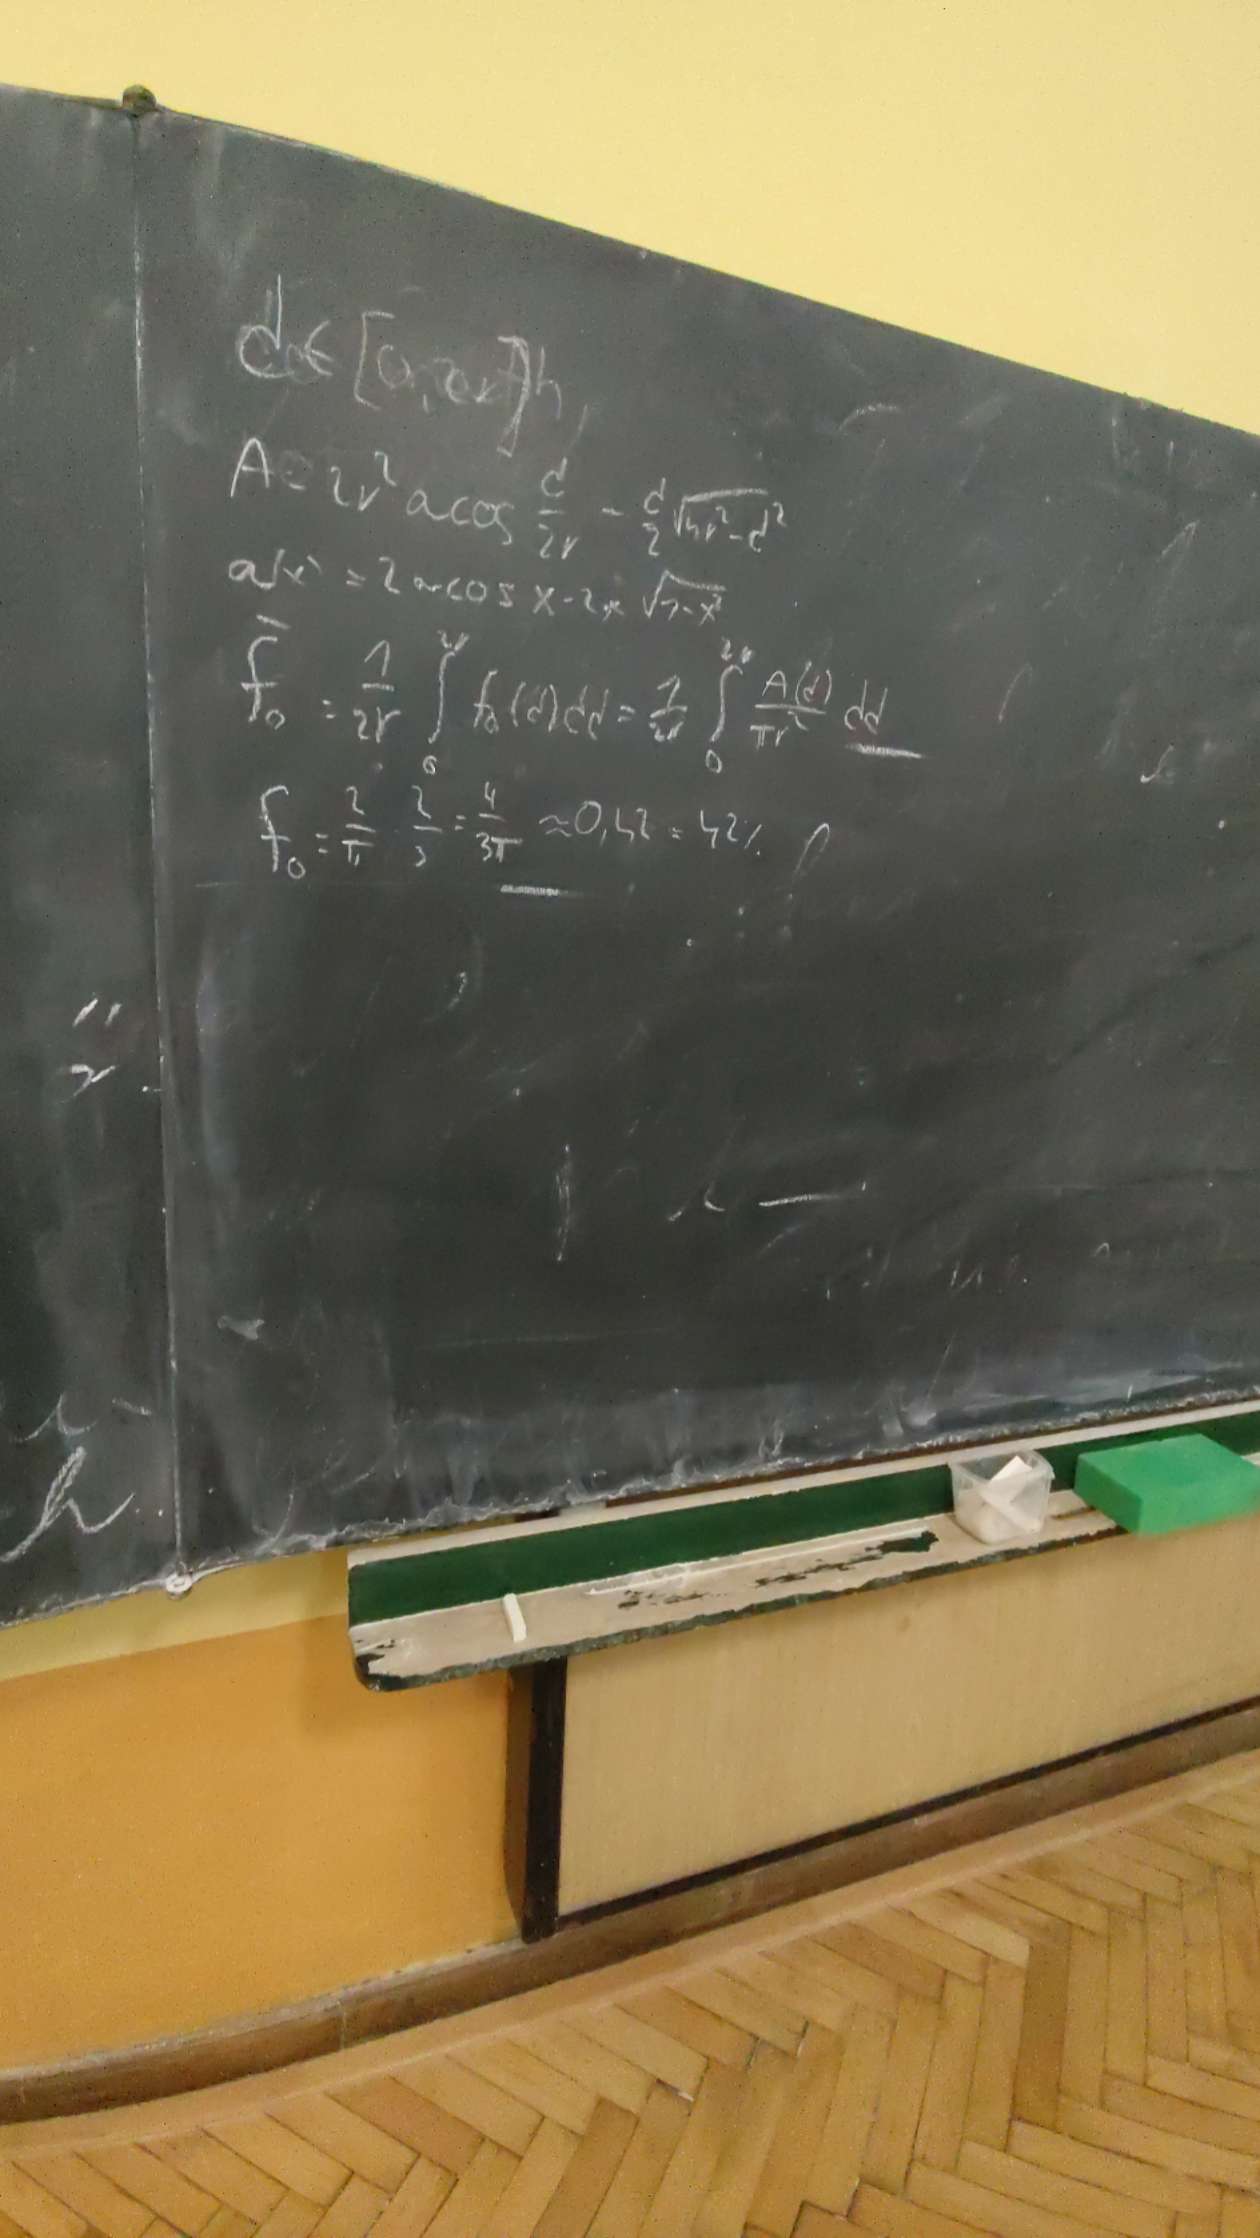 d ∈ [0, 2r]
A = 2r² acos d/2r - d/2 √(4r²-d²)
a(x) = 2 acos x - 2x √(1-x²)
f̄₀ = 1/2r ∫₀²ʳ f₀(d)dd = 1/2r ∫₀²ʳ A(d)/πr² dd
f̄₀ = 2/π · 2/3 = 4/3π ≈ 0,42 = 42%
h